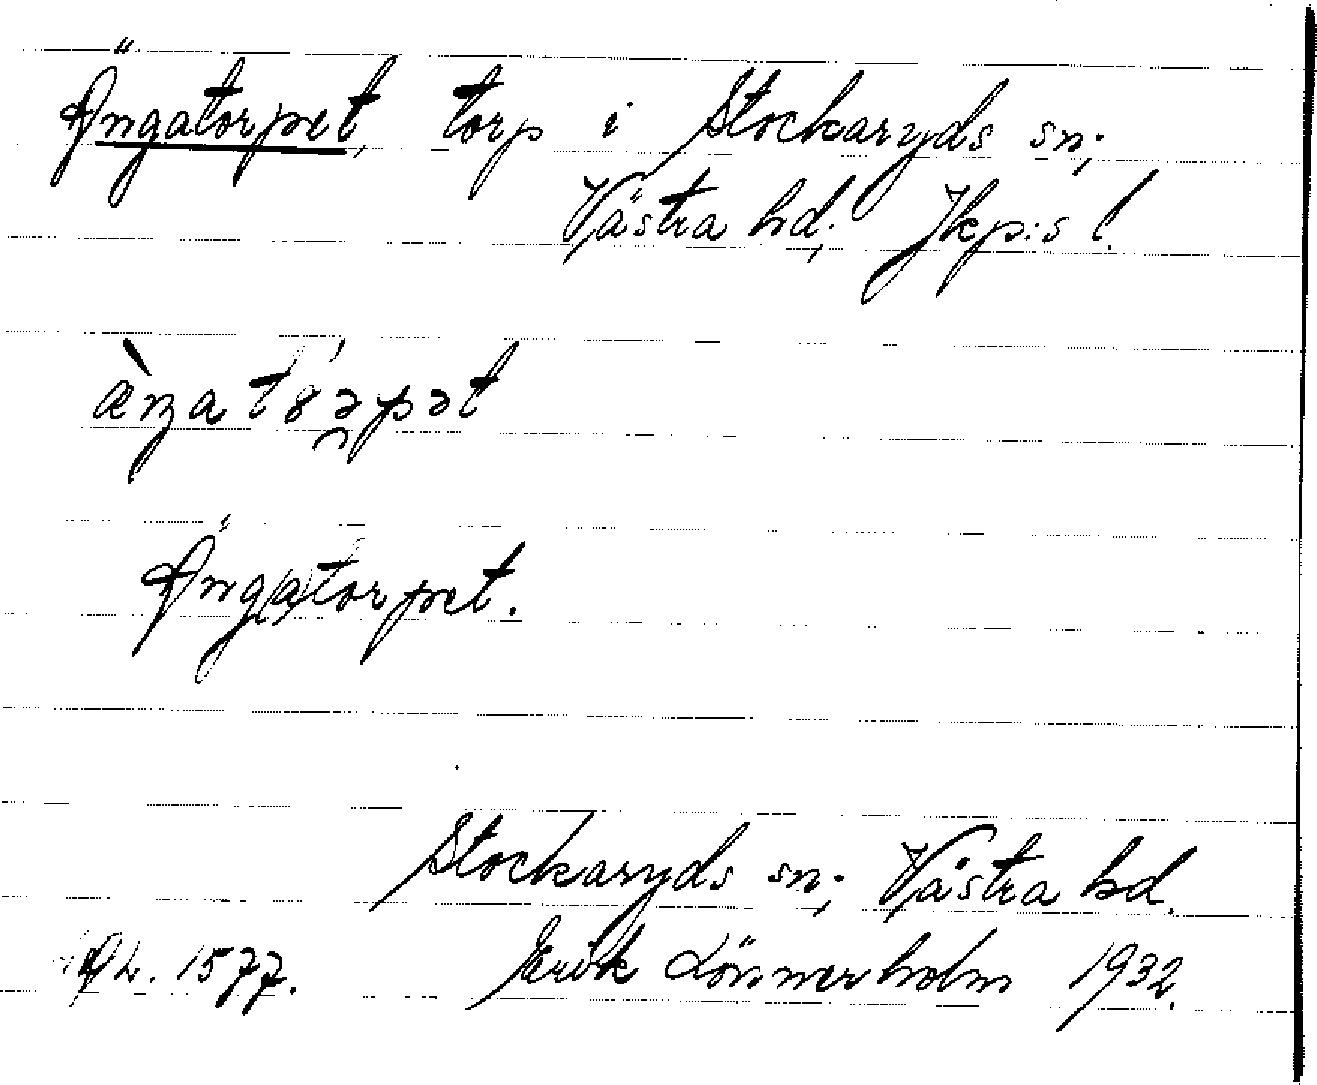 Ängatorpet, torp i Stockaryds sn;
Västra hd; Jkp:s l.
Äng(a)torpet.
Stockaryds sn; Västra hd.
1577. Erik Lönnerholm 1932.